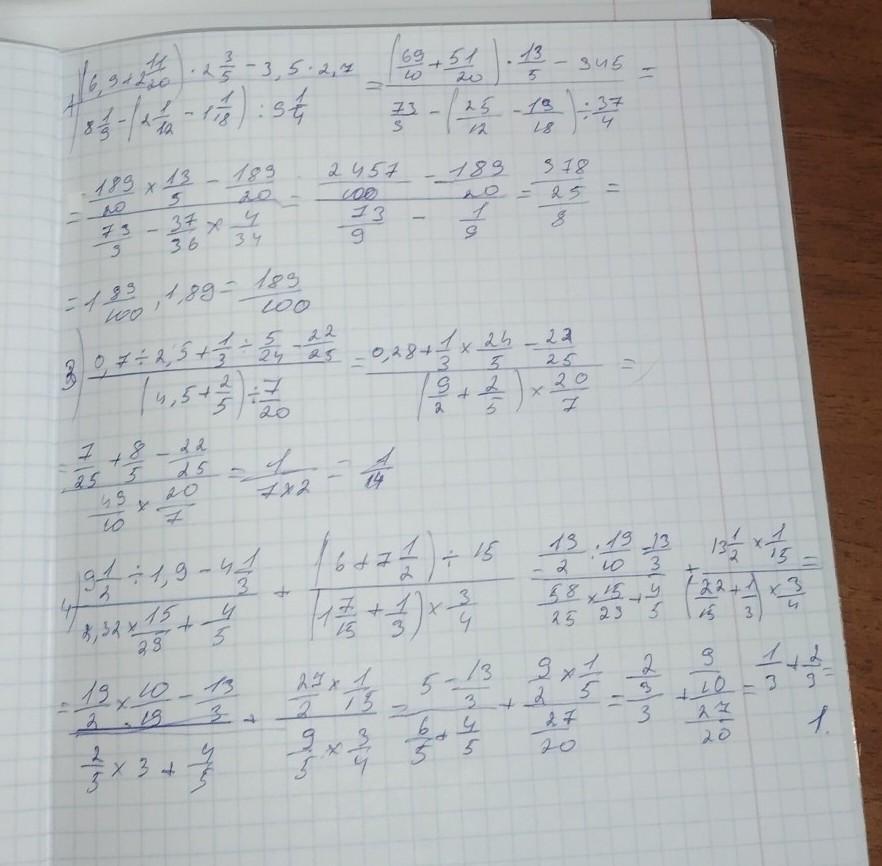 1) ((6,9+2 11/20) · 2 3/5 − 3,5 · 2,7)/(8 1/9 − (2 1/12 − 1 1/18) : 9 1/4) = ((69/10 + 51/20) · 13/5 − 945)/(73/9 − (25/12 − 19/18) ÷ 37/4) =
= (189/20 × 13/5 − 189/20)/(73/9 − 37/36 × 4/34) = (2457/100 − 189/20)/(73/9 − 1/9) = 378/25/8 =
= 1 89/100, 1,89 = 189/100
3) (0,7 ÷ 2,5 + 1/3 ÷ 5/24 − 22/25)/((4,5 + 2/5) ÷ 7/20) = (0,28 + 1/3 × 24/5 − 22/25)/((9/2 + 2/5) × 20/7) =
= (7/25 + 8/5 − 22/25)/(49/10 × 20/7) = 1/(7×2) = 1/14
4) (9 1/2 ÷ 1,9 − 4 1/3)/(2,32 × 15/29 + 4/5) + ((6 + 7 1/2) ÷ 15)/((1 7/15 + 1/3) × 3/4) (19/2 : 19/10 = 13/3)/(58/25 × 15/29 + 4/5) + (13 1/2 × 1/15)/((22/15 + 1/3) × 3/4) =
= (19/2 × 10/19 − 13/3)/(2/5 × 3 + 4/5) + (27/2 × 1/15)/(9/5 × 3/4) = (5 − 13/3)/(6/5 + 4/5) + (9/2 × 1/5)/(27/20) = 2/3/3 + 9/10/27/20 = 1/3 + 2/3 =
1.